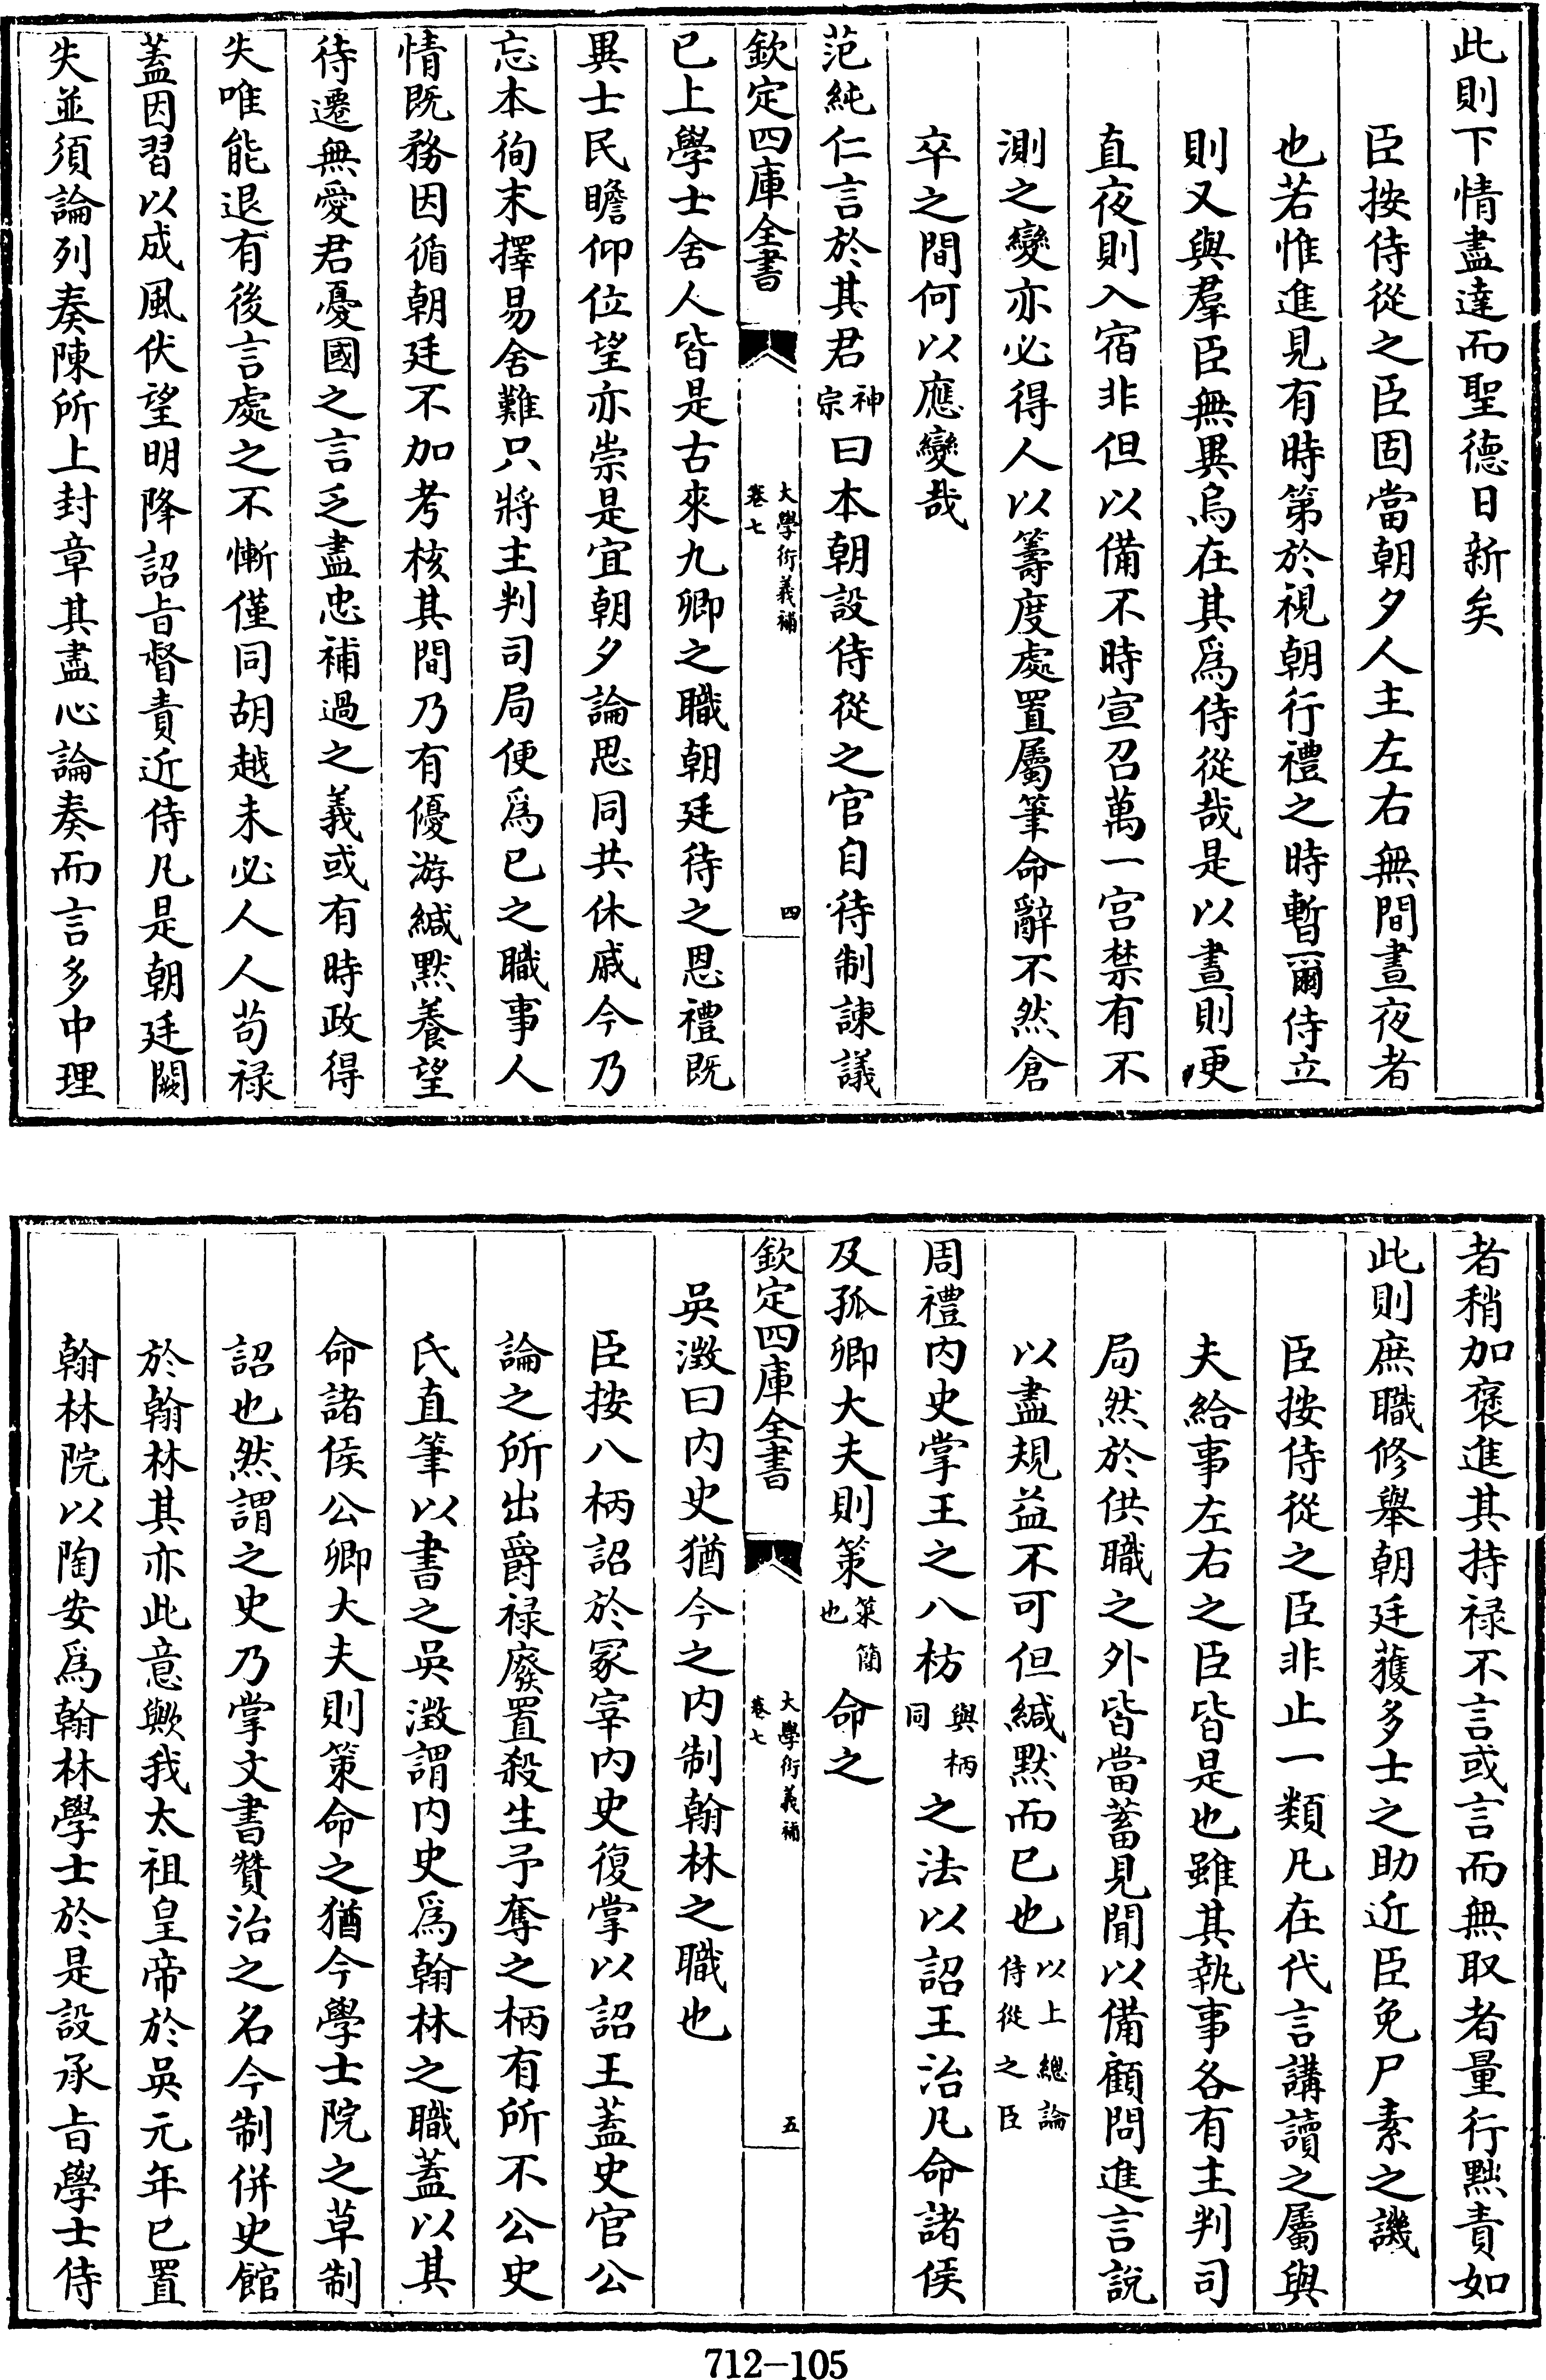 此則下情盡達而聖德日新矣
臣按侍從之臣固當朝夕人主左右無間晝夜者
也若惟進見有時第於視朝行禮之時暫爾侍立
則又與羣臣無異烏在其爲侍從哉是以晝則更
直夜則入宿非但以備不時宣召萬一宫禁有不
測之變亦必得人以籌度處置屬筆命辭不然倉
卒之間何以應變哉
范純仁言於其君神宗曰本朝設侍從之官自待制諫議
欽定四庫全書 大學衍義補 卷七 四
已上學士舍人皆是古來九卿之職朝廷待之恩禮既
異士民瞻仰位望亦崇是宜朝夕論思同共休戚今乃
忘本徇末擇易舍難只將主判司局便爲已之職事人
情既務因循朝廷不加考核其間乃有優游緘黙養望
待遷無愛君憂國之言乏盡忠補過之義或有時政得
失唯能退有後言處之不慚僅同胡越未必人人苟禄
蓋因習以成風伏望明降詔旨督責近侍凡是朝廷闕
失並須論列奏陳所上封章其盡心論奏而言多中理
者稍加褒進其持禄不言或言而無取者量行黜責如
此則庶職修舉朝廷獲多士之助近臣免尸素之譏
臣按侍從之臣非止一類凡在代言講讀之屬與
夫給事左右之臣皆是也雖其執事各有主判司
局然於供職之外皆當蓄見聞以備顧問進言説
以盡規益不可但緘默而已也以上總論侍從之臣
周禮内史掌王之八枋與柄同之法以詔王治凡命諸侯
及孤卿大夫則策策簡也命之
欽定四庫全書 大學衍義補 卷七 五
吳澂曰内史猶今之内制翰林之職也
臣按八柄詔於冢宰内史復掌以詔王蓋史官公
論之所出爵禄廢置殺生予奪之柄有所不公史
氏直筆以書之吳澂謂内史爲翰林之職蓋以其
命諸侯公卿大夫則策命之猶今學士院之草制
詔也然謂之史乃掌文書贊治之名今制併史館
於翰林其亦此意歟我太祖皇帝於吳元年已置
翰林院以陶安爲翰林學士於是設承旨學士侍
712-105